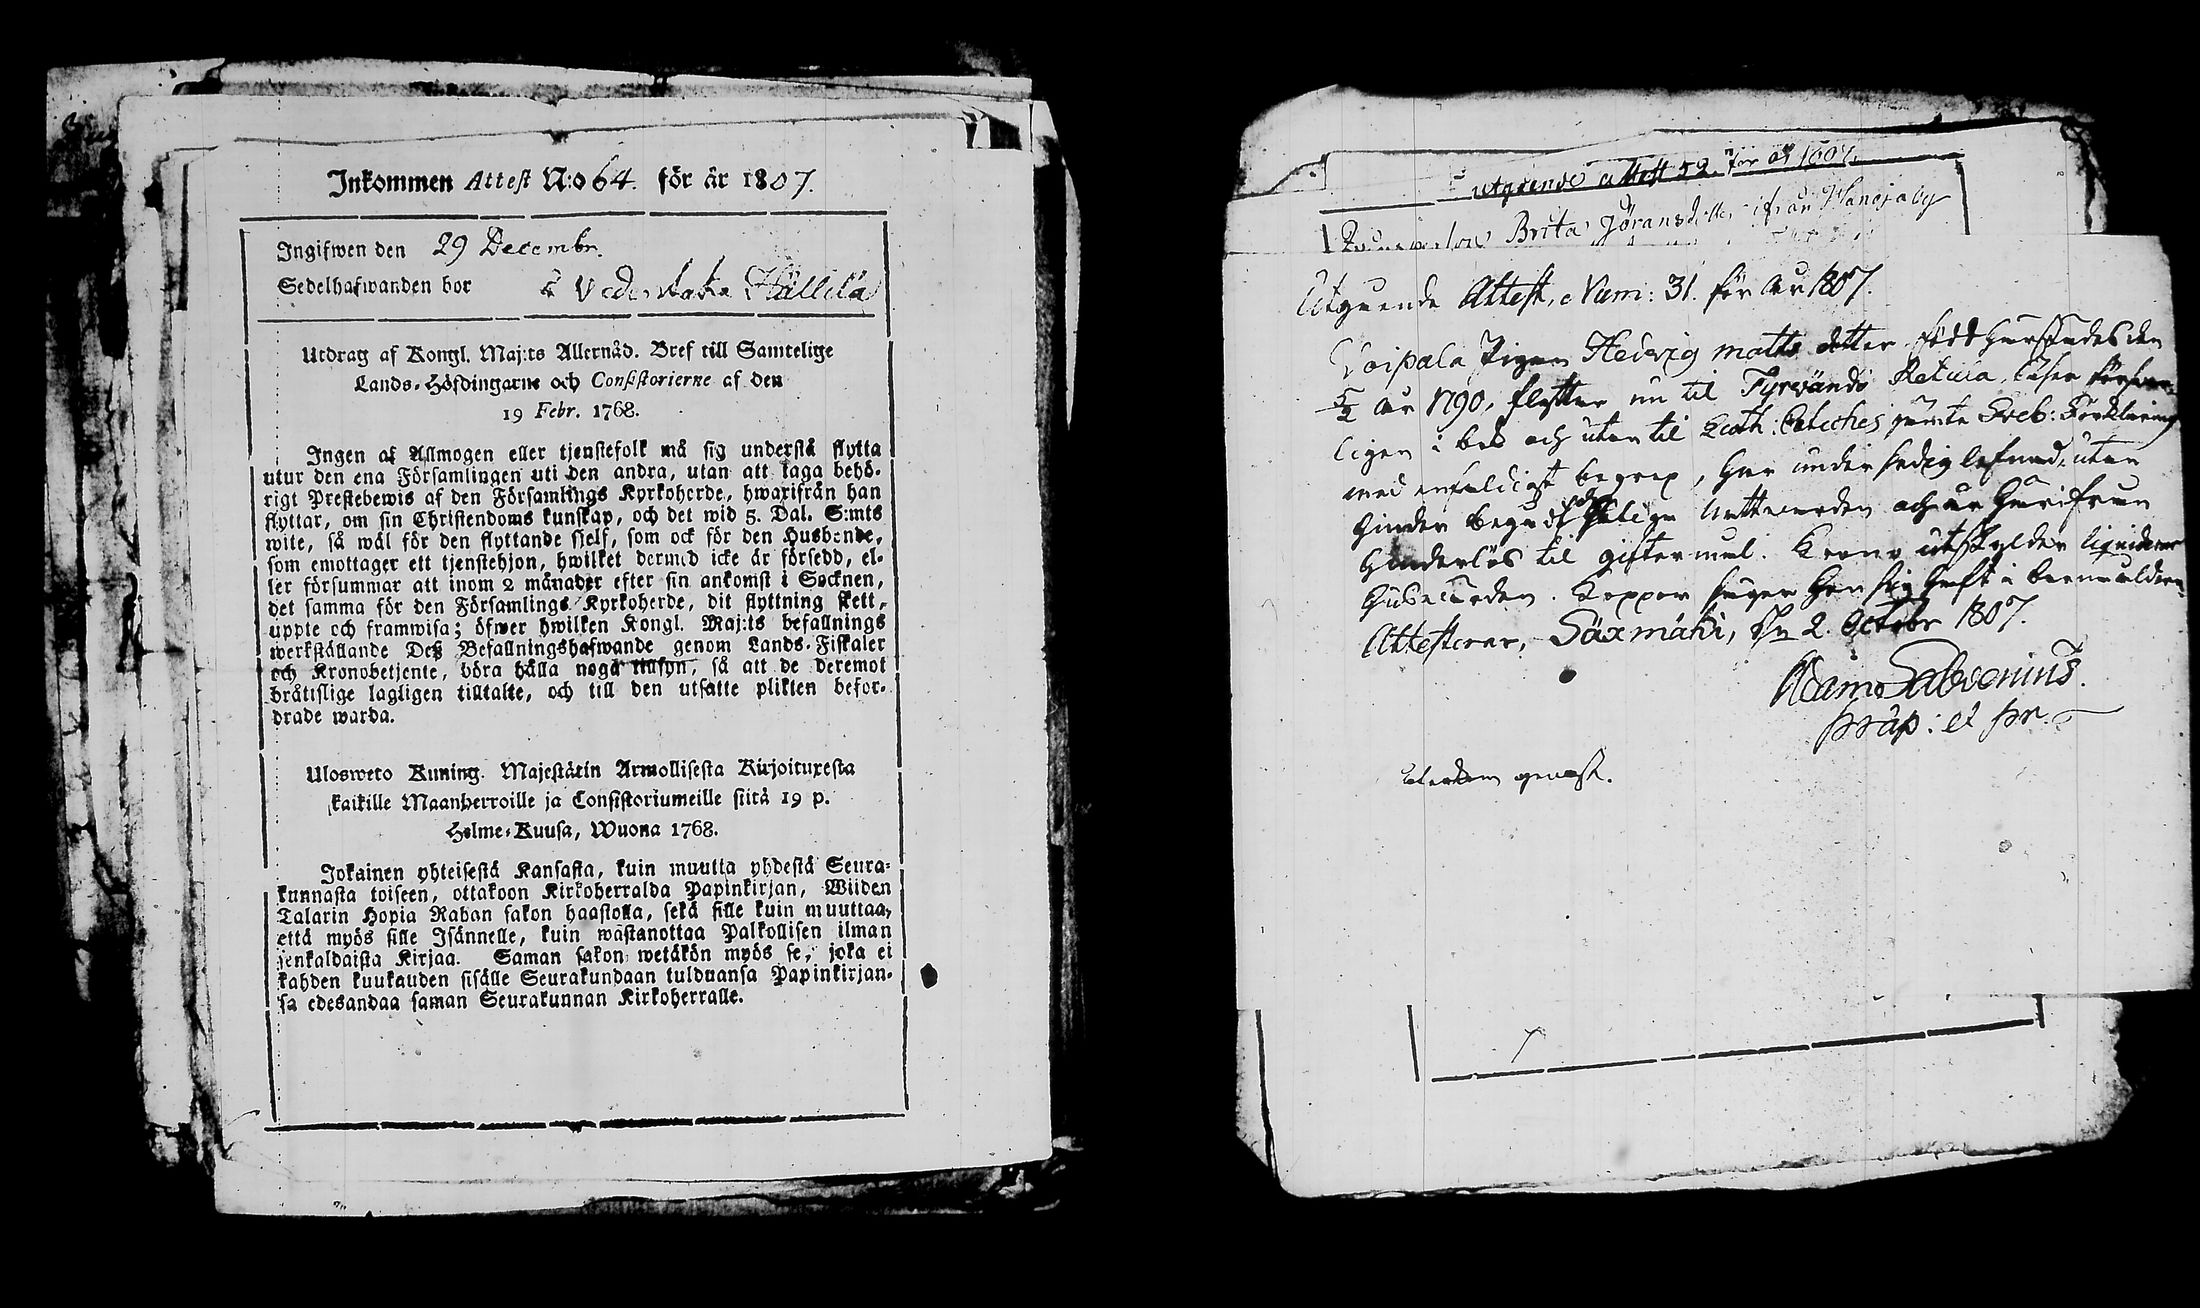 Inkommen Attest N:o 64. för år 1807.
Ingifwen den 29 Decembr.
Sedelhafwanden bor i Vedentaka Hällilä
Utdrag af Kongl. Maj:ts Allernåd. Bref till Samtelige
Lands-Höfdingarne och Consistorierne af den
19 Febr. 1768.
Ingen af Allmogen eller tjenstefolk må sig understå flytta
utur den ena Församlingen uti den andra, utan att taga behö-
rigt Prestebewis af den Församlings Kyrkoherde, hwarifrån han
flyttar, om sin Christendoms kunskap, och det wid 5. Dal. S:mts
wite, så wäl för den flyttande sjelf, som ock för den Husbonde,
som emottager ett tjenstehjon, hwilket dermed icke är försedd, el-
ler försummar att inom 2 månader efter sin ankomst i Socknen,
det samma för den Församlings Kyrkoherde, dit flyttning skett,
uppte och framwisa; öfwer hwilken Kongl. Maj:ts befallnings
werkställande Deß Befallningshafwande genom Lands-Fiskaler
och Kronobetjente, böra hålla noga tillsyn, så att de deremot
bråtislige lagligen tilltalte, och till den utsatte plikten befor-
drade warda.
Ulosweto Kuning. Majestätin Armollisesta Kirjoituxesta
kaikille Maanherroille ja Consistoriumeille siitä 19 p.
Helme-Kuusa, Wuona 1768.
Jokainen yhteisestä Kansasta, kuin muutta yhdestä Seura-
kunnasta toiseen, ottakoon Kirkoherralda Papinkirjan, Wiiden
Talarin Hopia Rahan sakon haastolla, sekä sille kuin muuttaa,
että myös sille Isännelle, kuin wastanottaa Palkollisen ilman
senkaldaista Kirjaa. Saman sakon wetäkön myös se, joka ei
kahden kuukauden sisälle Seurakundaan tulduansa Papinkirjan-
sa edesandaa saman Seurakunnan Kirkoherralle.
utgående attest 52. för år 1807.
Brita Jöransdotter ifrån
Utgående Attest, Num: 31. för år 1807.
Voipala Pigan Hedvig Matts dotter, född härstädes den
5/2 år 1790, flyttar nu til Tyrvändö Retula, läser försvar-
ligen i bok och utan til Luth: Cateches jämte Sveb: Förklaring
med enfaldigt begrep, har under sedig lefnad, utan
hinder begått Salige Nattvarden och är härifrån
hinderlös til giftermål. Krono utskylder liquiderar
husbonden. Koppor säger hon sig haft i barnaåldern,
Attesterar, Säxmäki, d. 2. Octobr 1807.
Adam Salvenius.
præp: et pr.